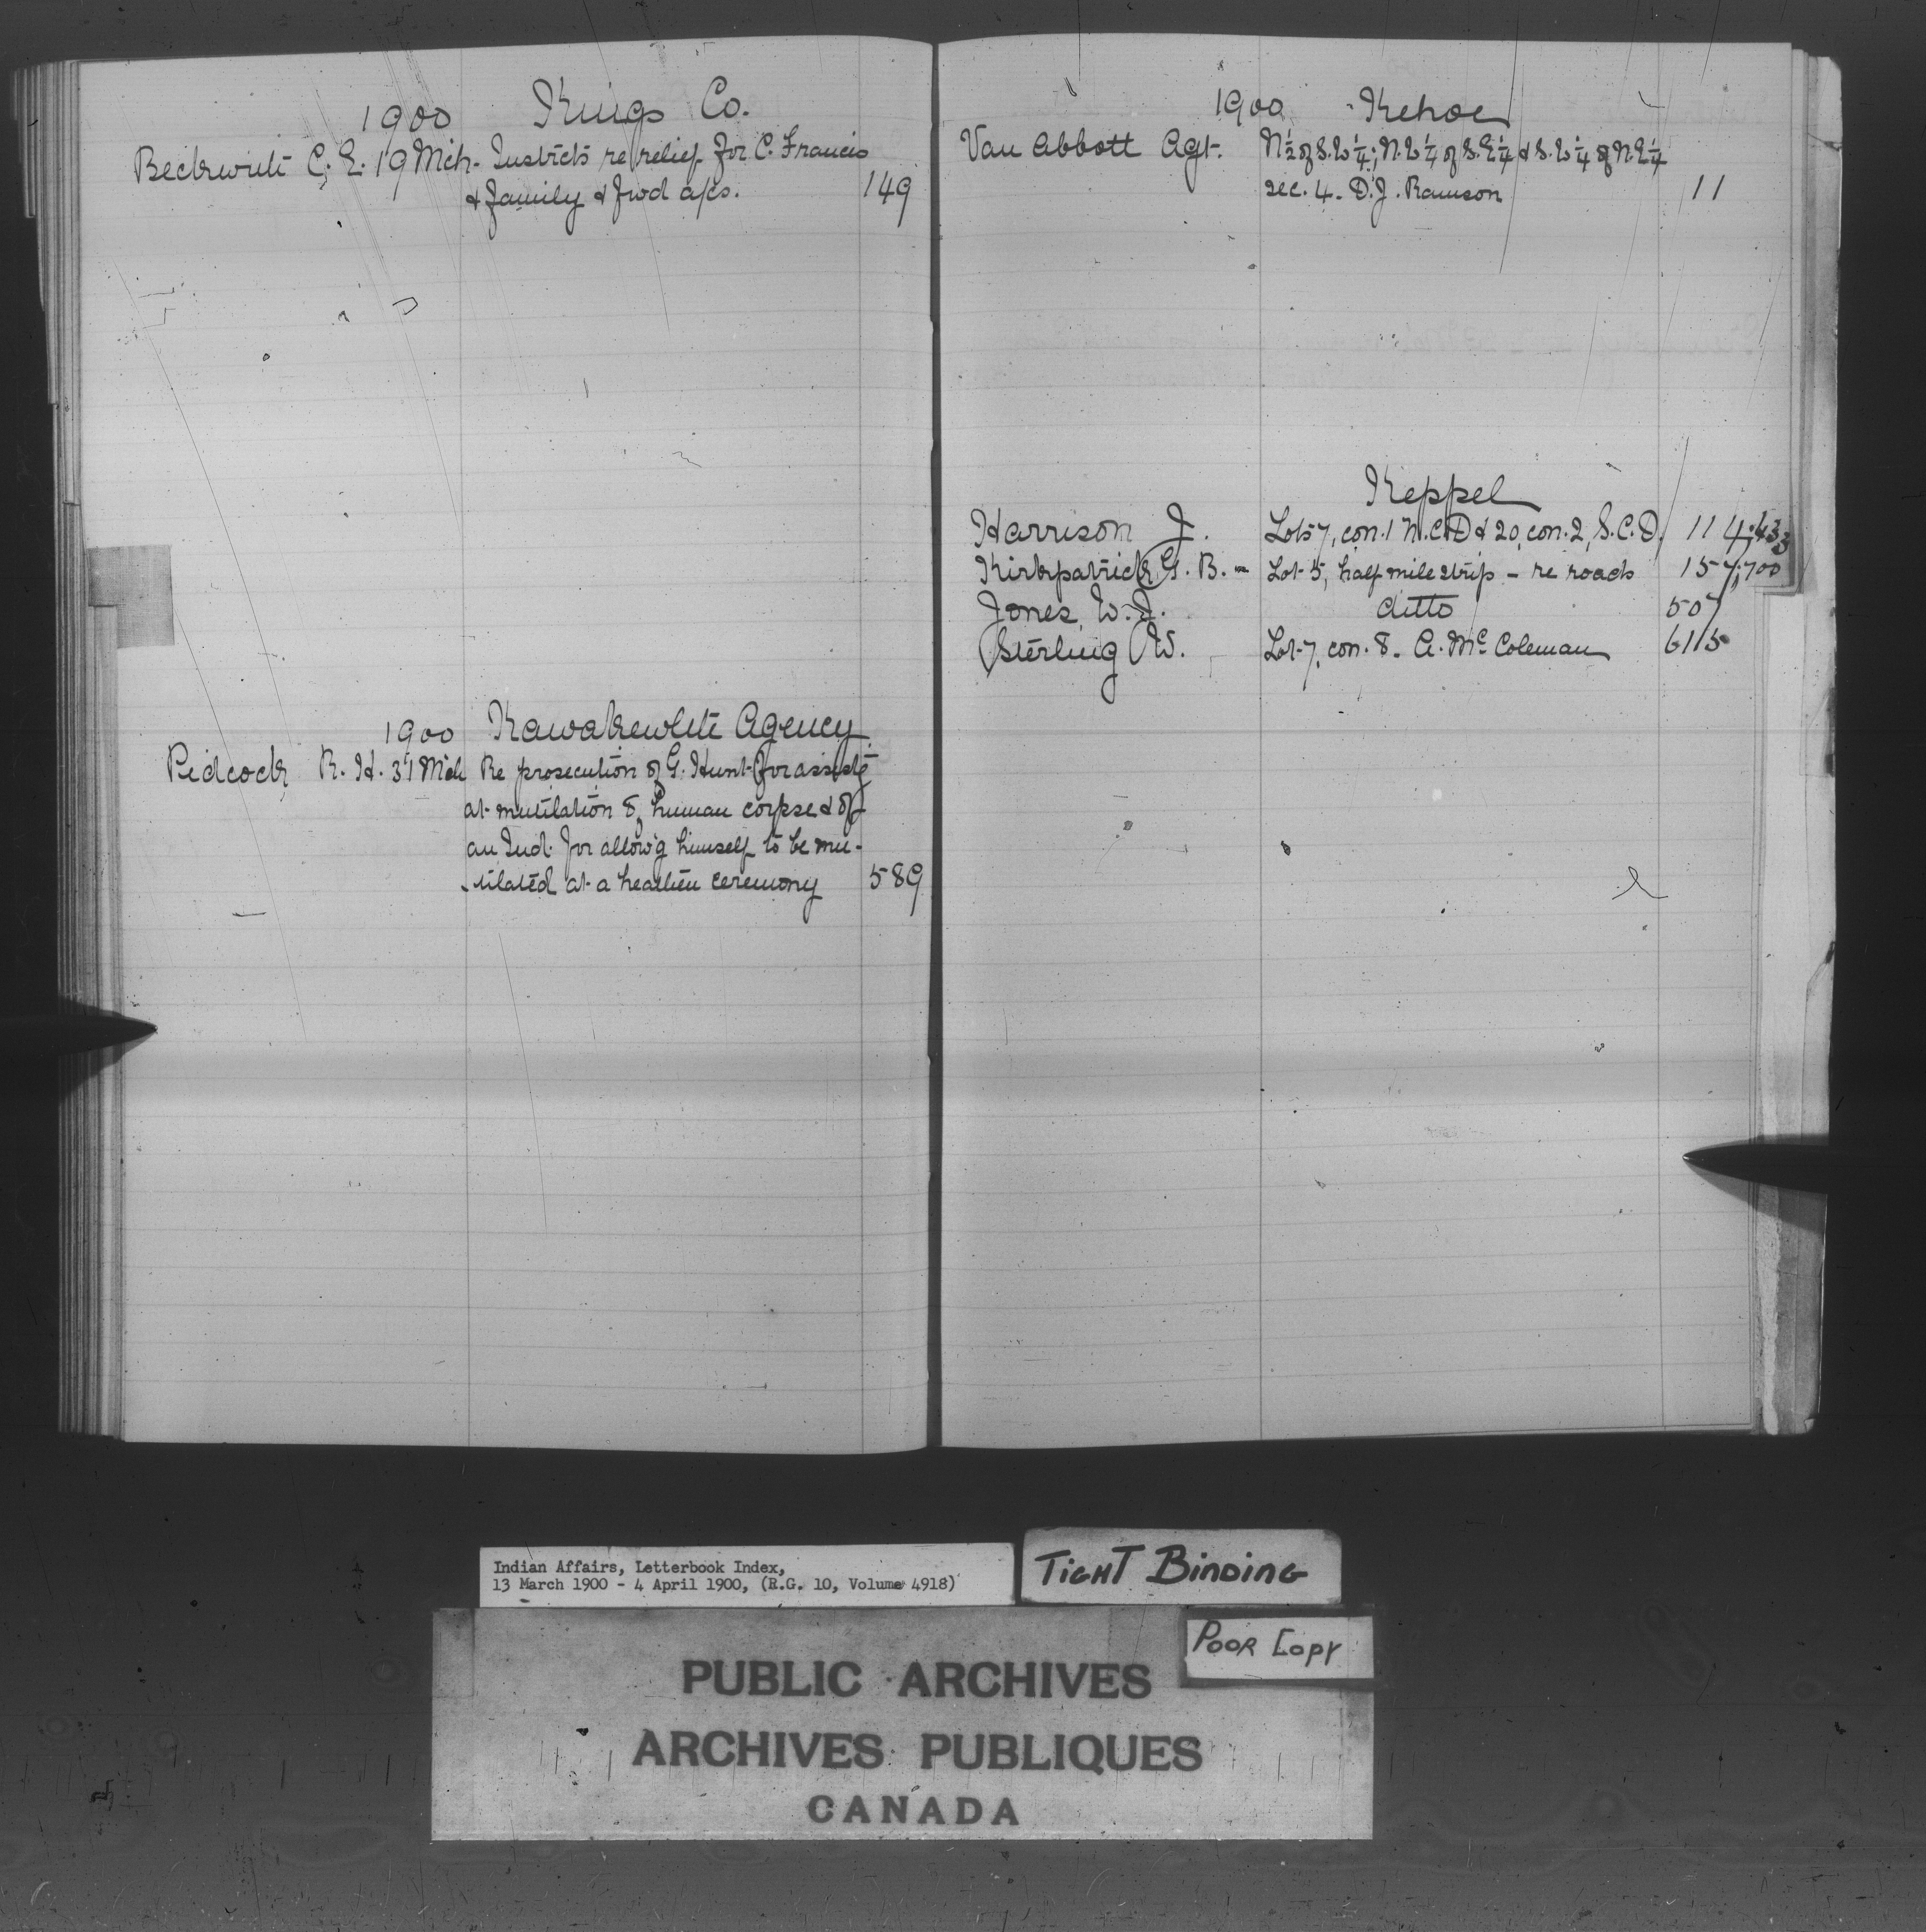 1900 Kings Co.
Beckwith C. E. 19 Mch. Instrcts re relief for C. Francis
& family & fwd a/cs. 149
1900 Kawakewlth Agency
Pidcock R. H. 31 Mch Re prosecution of G. Hunt for assistg
at mutilation of human corpse & of
an Ind. for allow'g himself to be mu-
-tilated at a heathen ceremony 589
1900 Kehoe
Van Abbott Agt. N½ of S.W¼; N.W¼ of S.E¼ & S.W¼ of N.E¼
sec. 4. D. J. Ramson 11
Keppel
Harrison J. Lots 7, con. 1 N.C.D & 20, con. 2, S.C.D. 114;433
Kirkpatrick G. B. - Lot 5, half mile strip - re roads 157;700
Jones, W. J. ditto 507
Sterling W. Lot 7, con. 8. A. Mc Coleman 615
Indian Affairs, Letterbook Index,
13 March 1900 - 4 April 1900, (R.G. 10, Volume 4918)
TIGHT BINDING
POOR COPY
PUBLIC ARCHIVES
ARCHIVES PUBLIQUES
CANADA